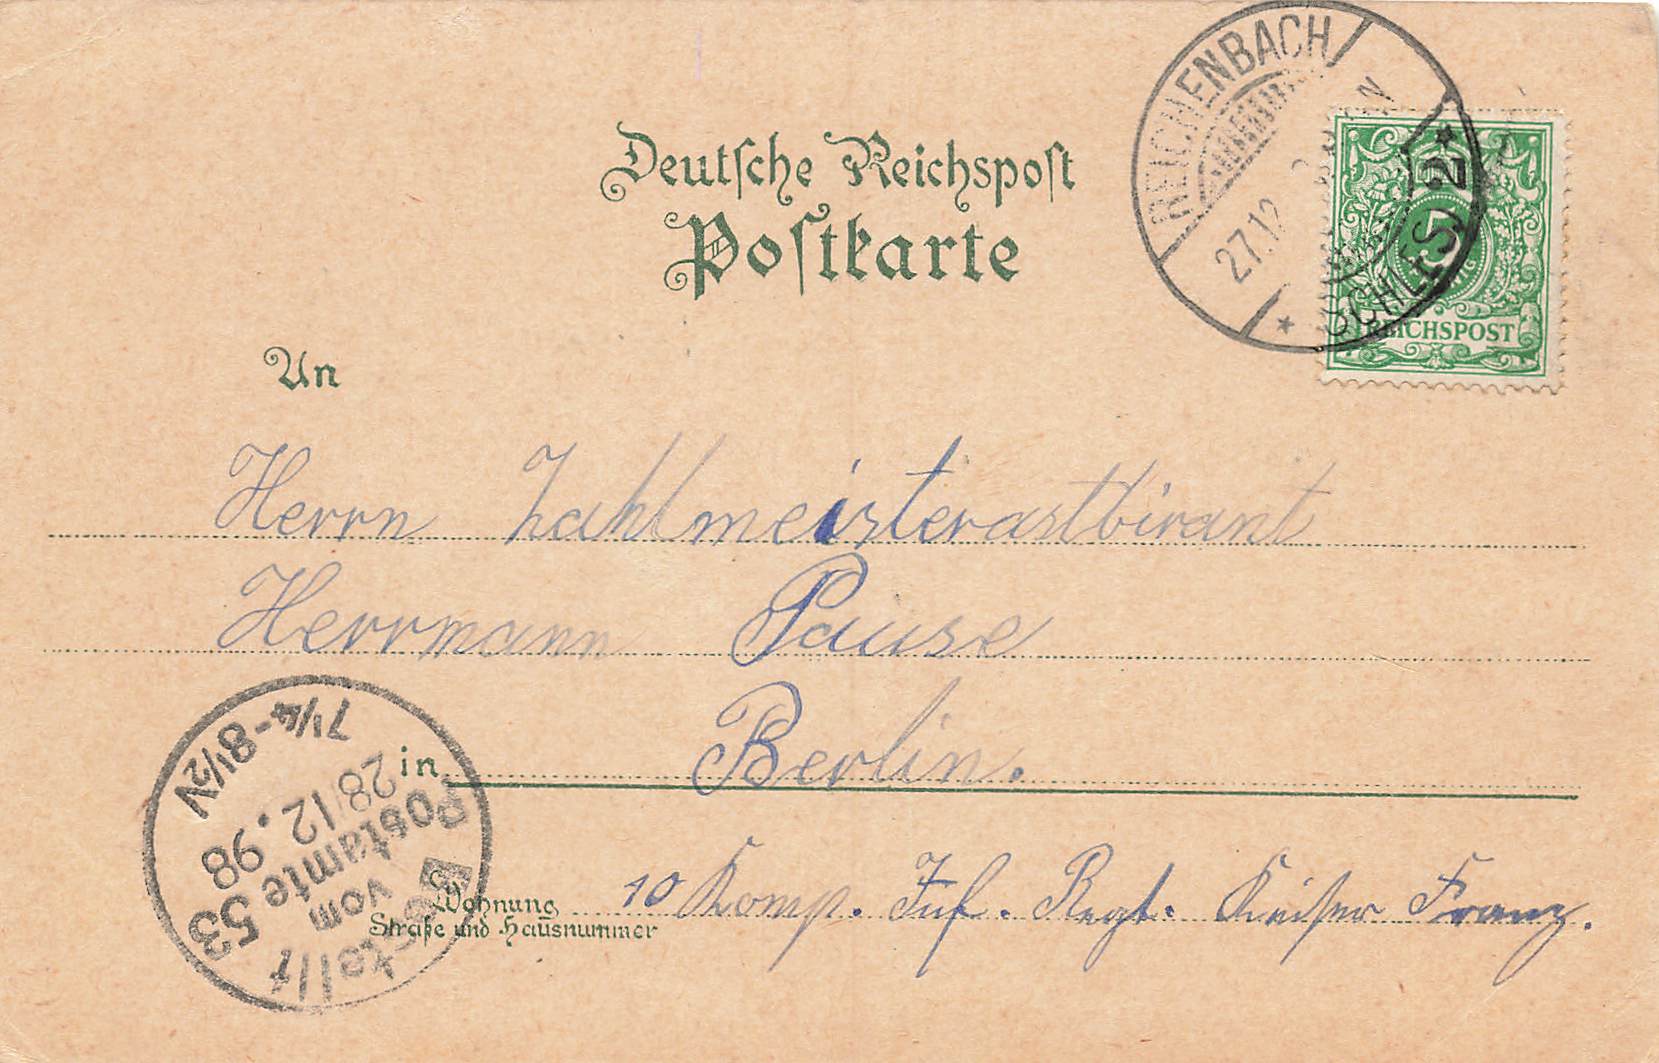 Deutsche Reichspost
Postkarte
REICHENBACH
27.12
SCHLES
2
5
REICHSPOST
An
Herrn Zahlmeisterastbirant
Herrmann Pause
in Berlin.
Wohnung 10 Komp. Inf. Regt. Keiser Franz.
Straße und Hausnummer
Bestellt
vom
Postamte 53
28/12.98
7¼-8½N